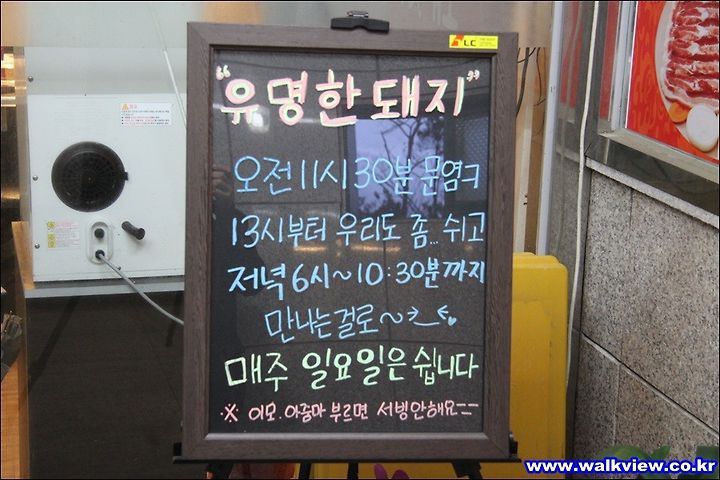 LC
"유명한돼지"
오전11시30분 문염ㅋ
13시부터 우리도 좀... 쉬고
저녁6시~10:30분까지
만나는걸로~
매주 일요일은 쉽니다
※ 이모.아줌마 부르면 서빙안해요==
www.walkview.co.kr